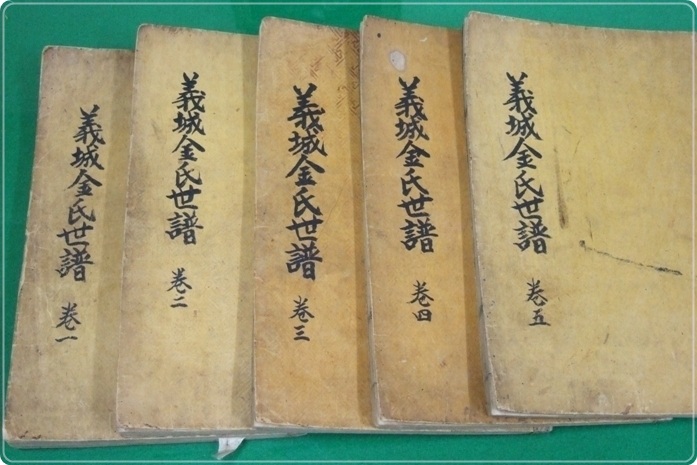 義城金氏世譜
卷一
義城金氏世譜
卷二
義城金氏世譜
卷三
義城金氏世譜
卷四
義城金氏世譜
卷五